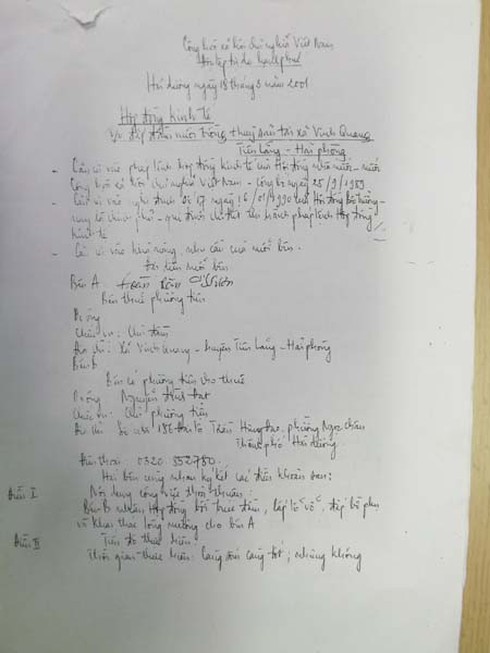 Cộng hoà xã hội chủ nghĩa Việt Nam
Độc lập tự do hạnh phúc
Hải dương ngày 18 tháng 3 năm 2001
Hợp đồng kinh tế
V/v đắp đầm nuôi trồng thuỷ sản tại xã Vinh Quang
Tiên Lãng - Hải phòng
- Căn cứ vào pháp lệnh hợp đồng kinh tế của Hội đồng nhà nước - nước
Cộng hoà xã hội chủ nghĩa Việt Nam - công bố ngày 25/9/1989
- Căn cứ vào nghị định số 17 ngày 16/01/1990 của Hội đồng Bộ trưởng -
nay là chính phủ - qui định chi tiết thi hành pháp lệnh Hợp đồng
kinh tế
- Căn cứ vào khả năng nhu cầu của mỗi bên.
Đại diện mỗi bên
Bên A: Đoàn Văn
Bên thuê phương tiện
Do ông
Chức vụ: Chủ đầm
Địa chỉ: Xã Vinh Quang - huyện Tiên Lãng - Hải phòng
Bên B
Bên có phương tiện cho thuê
Do ông Nguyễn
Chức vụ: Chủ phương tiện
Địa chỉ Số nhà 186 Trần Hưng Đạo, phường Ngọc Châu
Thành phố Hải dương
Điện thoại 0320 852780.
Hai bên cùng nhau ký kết các điều khoản sau:
Điều I Nội dung công việc thoả thuận:
Bên B nhận Hợp đồng bồi trúc đầm, lấp, đắp bổ phụ
và khai thác lòng mương cho bên A
Điều II Tiến độ thực hiện:
Thời gian thực hiện: Càng sớm càng tốt; nhưng không